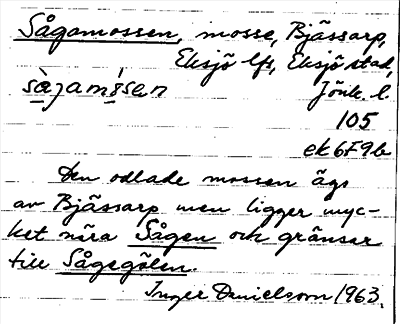 Sågamossen, mosse, Bjässarp,
Eksjö lfs, Eksjö stad,
sågamåsen Jönk. l.
105
ek 6F9b
Den odlade mossen ägs
av Bjässarp men ligger myc-
ket nära Sågen och gränsar
till Sågegölen.
Inger Danielsson 1963.